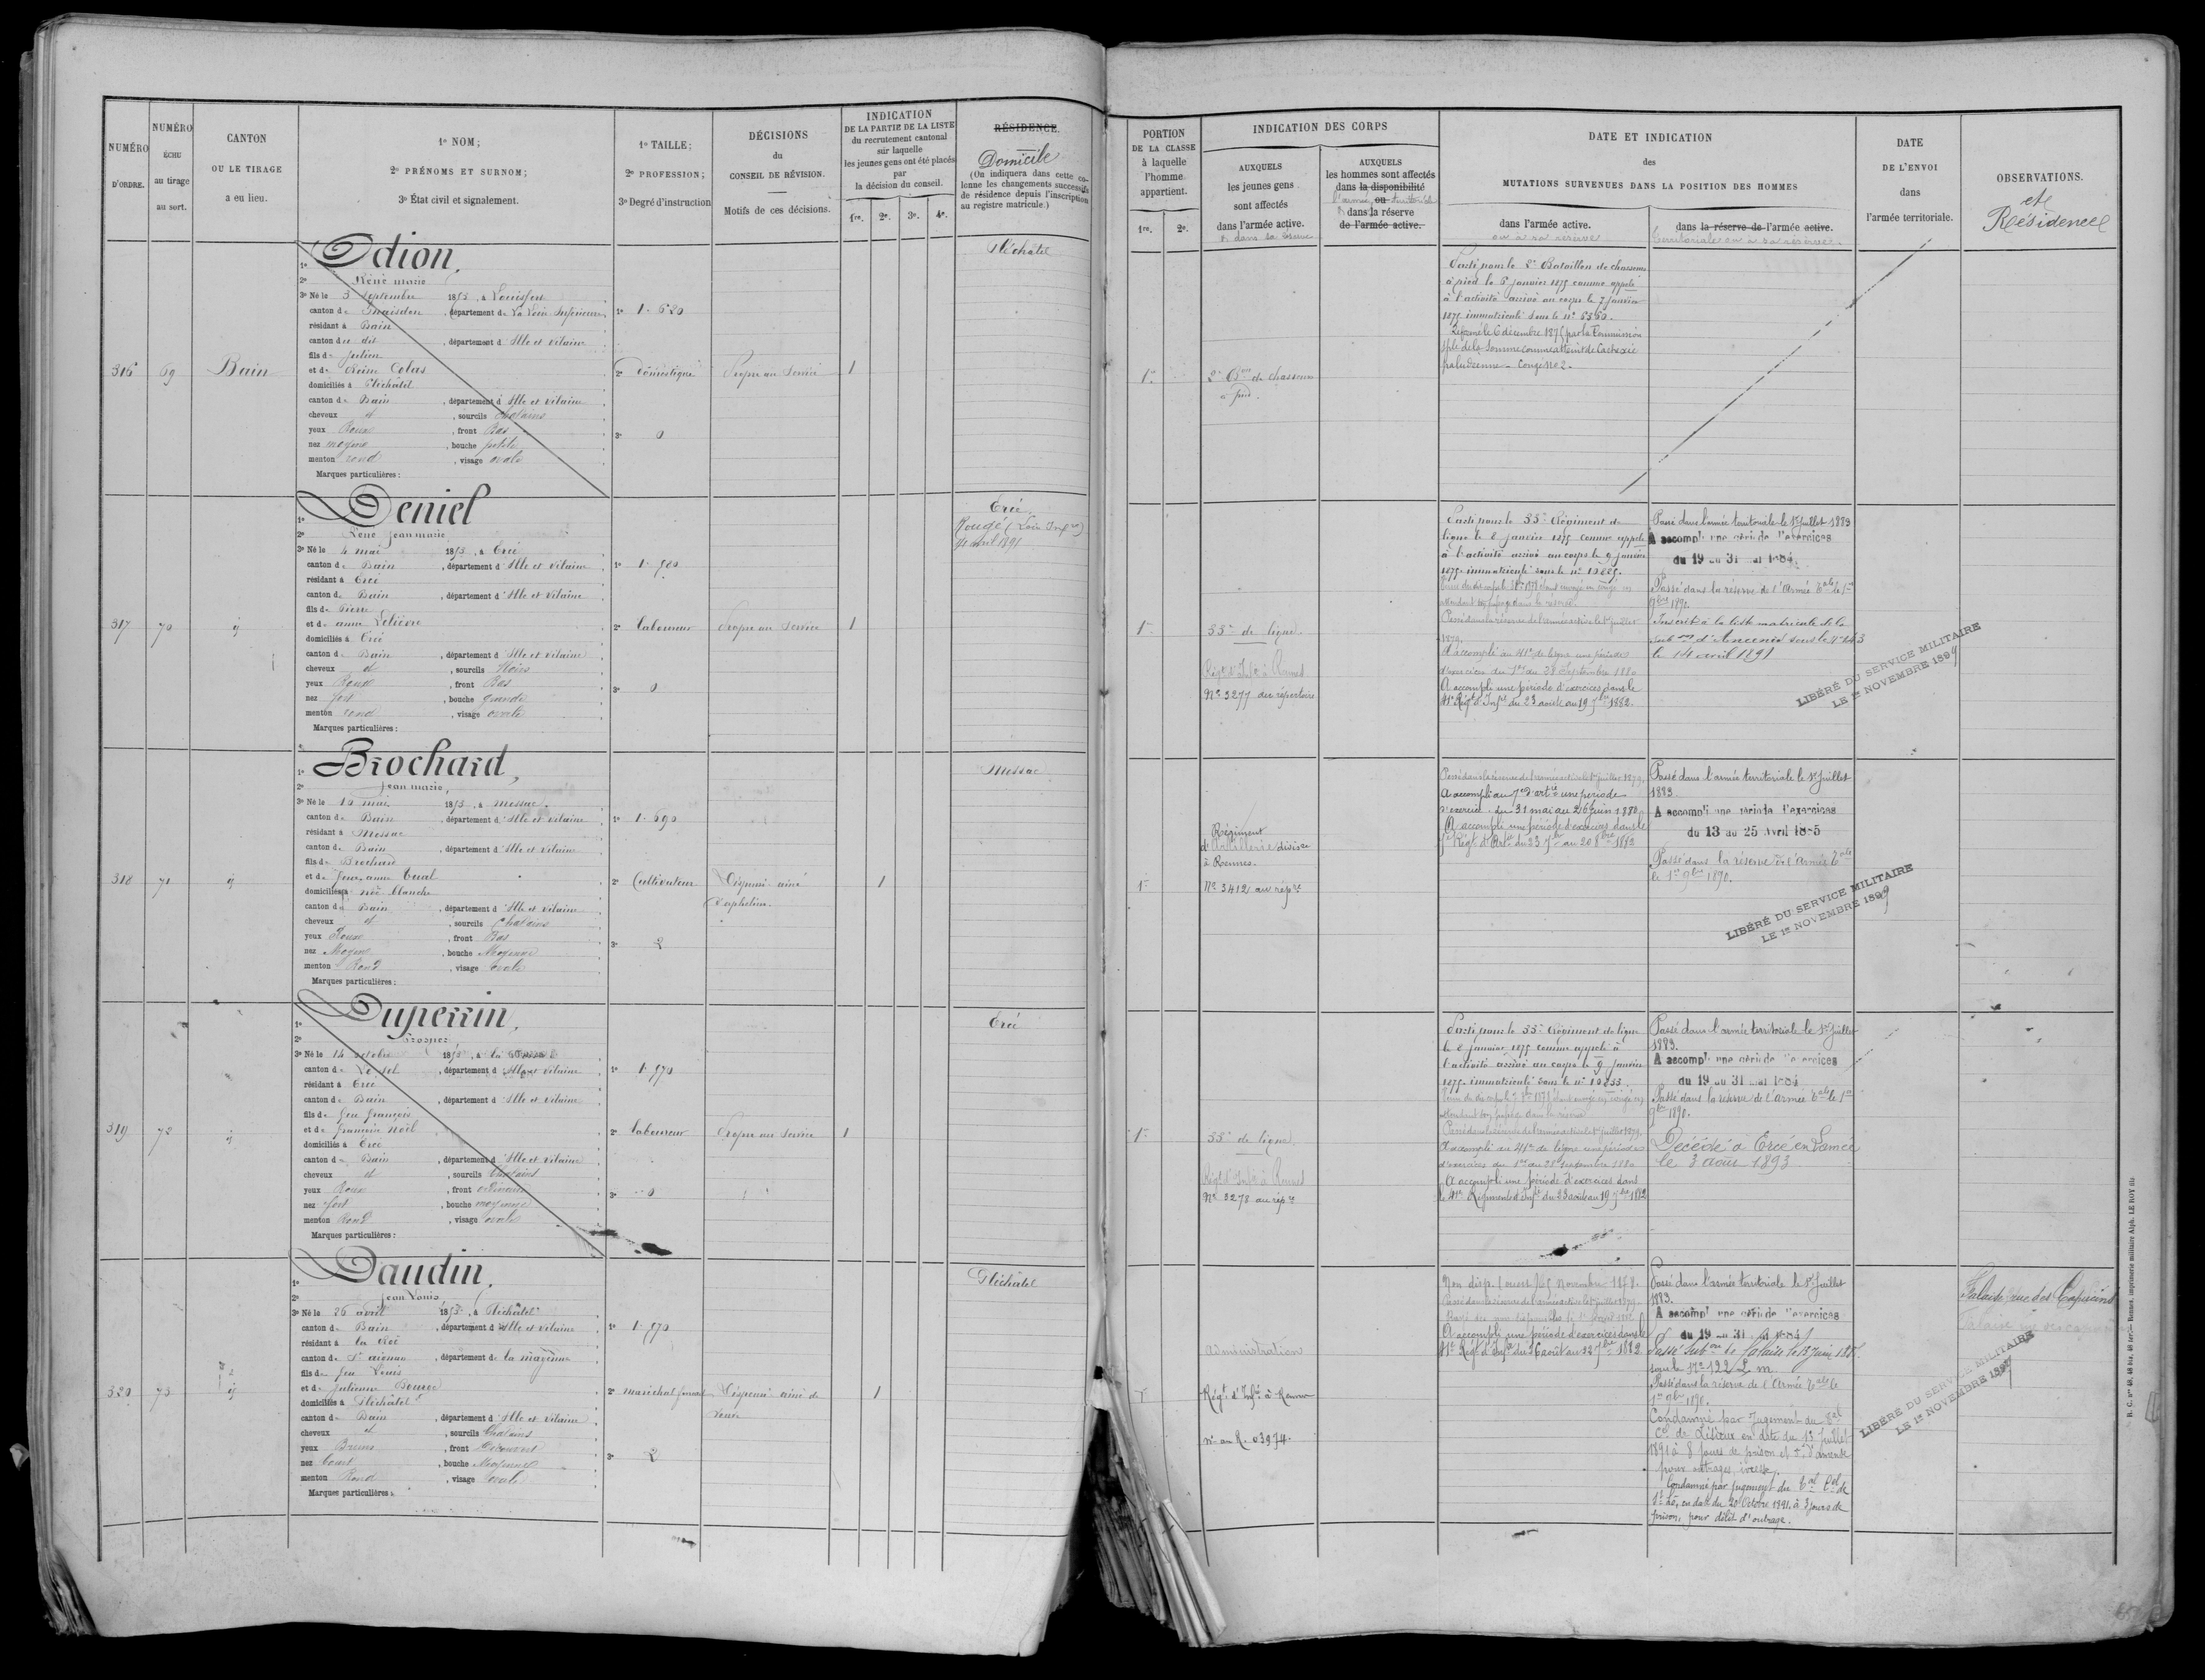 NUMÉRO
D'ORDRE.
NUMÉRO
ÉCHU
au tirage
au sort.
CANTON
OU LE TIRAGE
a eu lieu.
1º NOM;
2º PRÉNOMS ET SURNOM;
3º État civil et signalement.
1º TAILLE;
2º PROFESSION;
3º Degré d'instruction
DÉCISIONS
du
CONSEIL DE RÉVISION.
Motifs de ces décisions.
INDICATION
DE LA PARTIE DE LA LISTE
du recrutement cantonal
sur laquelle
les jeunes gens ont été placés
par
la décision du conseil.
1re. 2e. 3e. 4e.
RÉSIDENCE.
Domicile
(On indiquera dans cette co-
lonne les changements successifs
de résidence depuis l'inscription
au registre matricule.)
PORTION
DE LA CLASSE
à laquelle
l'homme
appartient.
1re. 2e.
INDICATION DES CORPS
AUXQUELS
les jeunes gens
sont affectés
dans l'armée active.
& dans sa réserve
AUXQUELS
les hommes sont affectés
dans la disponibilité
ou
l'armée territoriale
& dans la réserve
de l'armée active.
DATE ET INDICATION
des
MUTATIONS SURVENUES DANS LA POSITION DES HOMMES
dans l'armée active.
ou à sa réserve
dans la réserve de l'armée active.
territoriale ou à sa réserve.
DATE
DE L'ENVOI
dans
l'armée territoriale.
OBSERVATIONS.
et
Résidence
316
69
Bain
1º Odion,
2º René marie
3º Né le 3 Septembre 1853, à Louisfert
canton de , département de La Loire Inférieure
résidant à Bain
canton du dit , département d'Ille et Vilaine
fils de Julien
et de Reine Colas
domiciliés à Pléchâtel
canton de Bain , département d'Ille et Vilaine
cheveux et , sourcils Chatains
yeux Roux , front Bas
nez moyen , bouche petite
menton rond , visage ovale
Marques particulières :
1º 1. 620
2º Domestique
3º 0
Propre au Service
1
Pléchâtel
1re
2e Bon de chasseurs
à pied.
Parti pour le 2e Bataillon de chasseurs
à pied le 6 janvier 1875 comme appelé
à l'activité arrivé au corps le 7 janvier
1875 immatriculé sous le nº 5360.
Réformé le 6 décembre 1875 par la Commission
sple de la Somme comme atteint de Cachexie
paludéenne - Congé nº 2.
317
70
ij
1º Deniel
2º René Jean marie
3º Né le 4 mai 1853, à Ercé
canton de Bain , département d'Ille et Vilaine
résidant à Ercé
canton de Bain , département d'Ille et Vilaine
fils de Pierre
et de anne Lelièvre
domiciliés à Ercé
canton de Bain , département d'Ille et Vilaine
cheveux et , sourcils Noirs
yeux Roux , front Bas
nez fort , bouche grande
menton rond , visage ovale
Marques particulières :
1º 1. 580
2º laboureur
3º 0
Propre au Service
1
Ercé.
Rougé (Loire Infre)
14 avril 1891
1re
55e de ligne.
Régt d'Infie à Rennes
Nº 3277 du répertoire
Parti pour le 55e Régiment de
ligne le 8 janvier 1875 comme appelé
à l'activité arrivé au corps le 9 janvier
1875 immatriculé sous le nº 10825.
Passé dans la réserve de l'armée active le 1er juillet
1879.
A accompli au 41e de ligne une période
d'exercices du 1er au 28 Septembre 1880
A accompli une période d'exercices dans le
41e Régt d'Infie du 23 août au 19 7bre 1882.
Passé dans l'armée territoriale le 1er Juillet 1883
A accompli une période d'exercices
du 19 au 31 mai 1884.
Passé dans la réserve de l'Armée Tale le 1er
9bre 1890.
Inscrit à la liste matricule de la
Subon d'Ancenis sous le nº 243
le 14 avril 1891
LIBÉRÉ DU SERVICE MILITAIRE
LE 1er NOVEMBRE 1899
318
71
ij
1º Brochard,
2º Jean marie,
3º Né le 12 mai 1853, à Messac.
canton de Bain , département d'Ille et Vilaine
résidant à Messac
canton de Bain , département d'Ille et Vilaine
fils de Brochard
et de feue, anne Tual
domiciliés à Noë blanche
canton de Bain , département d'Ille et Vilaine
cheveux et , sourcils Chatains
yeux Roux , front Bas
nez Moyen , bouche Moyenne
menton Rond , visage ovale
Marques particulières :
1º 1. 690
2º Cultivateur
3º 2
Dispensé ainé
d'orphelins.
1
Messac
1re
Régiment
d'Artillerie divisre
à Rennes.
Nº 3412 au réper
Passé dans la réserve de l'armée active le 1er juillet 1879.
A accompli au 7e d'artie une période
d'exercices du 31 mai au 26 juin 1880
A accompli une période d'exercices dans le
Régt d'Artie du 23 7bre au 20 8bre 1882
Passé dans l'armée territoriale le 1er Juillet
1883
A accompli une période d'exercices
du 13 au 25 Avril 1885
Passé dans la réserve de l'Armée Tale
le 1er 9bre 1890.
LIBÉRÉ DU SERVICE MILITAIRE
LE 1er NOVEMBRE 1899
319
72
ij
1º Duperrin,
2º Prosper
3º Né le 14 octobre 1853, à la
canton de , département d'Ille et Vilaine
résidant à Ercé
canton de Bain , département d'Ille et Vilaine
fils de feu françois
et de françoise Noël
domiciliés à Ercé
canton de Bain , département d'Ille et Vilaine
cheveux et , sourcils Chatains
yeux Roux , front ordinaire
nez fort , bouche moyenne
menton Rond , visage ovale
Marques particulières :
1º 1. 570
2º laboureur
3º 0
Propre au Service
1
Ercé
1re
55e de ligne.
Régt d'Infie à Rennes
Nº 3278 au répre
Parti pour le 55e Régiment de ligne
le 8 janvier 1875 comme appelé à
l'activité arrivé au corps le 9 janvier
1875 immatriculé sous le nº 10833.
Passé dans la réserve de l'armée active le 1er juillet 1879.
A accompli au 41e de ligne une période
d'exercices du 1er au 28 Septembre 1880
A accompli une période d'exercices dans
le 41e Régiment d'Infie du 23 août au 19 7bre 1882
Passé dans l'armée territoriale le 1er Juillet
1883.
A accompli une période d'exercices
du 19 au 31 mai 1884
Passé dans la réserve de l'Armée Tale le 1er
9bre 1890.
Décédé à Ercé en Lamée
le 3 août 1893
320
73
ij
1º Daudin,
2º Jean Louis,
3º Né le 26 avril 1853, à Pléchâtel
canton de Bain , département d'Ille et Vilaine
résidant à la
canton de St aignan , département de la mayenne
fils de feu Louis
et de Julienne Bourge
domiciliés à Pléchâtel
canton de Bain , département d'Ille et Vilaine
cheveux et , sourcils Chatains
yeux Bruns , front Découvert
nez Court , bouche Moyenne
menton Rond , visage ovale
Marques particulières :
1º 1. 570
2º maréchal ferrant
3º 2
Dispensé ainé de
veuve
1
Pléchâtel
1
Administration
Régt d'Infie à Rennes
nº au R. 03974.
Passé dans la réserve de l'armée active le 1er juillet 1879.
A accompli une période d'exercices dans le
41e Régt d'Infie du 26 août au 22 7bre 1882
Passé dans l'armée territoriale le 1er Juillet
1883.
A accompli une période d'exercices
du 19 au 31 mai 1884
sous le Nº 122 L m
Passé dans la réserve de l'Armée Tale le
1er 9bre 1890.
Condamné par Jugement du Tal
Cel de Lisieux en date du 13 Juillet
1891 à 8 jours de prison et 5f d'amende
pour outrages, ivresse.
Condamné par jugement du Tal Cel de
St Lô, en date du 20 Octobre 1891, à 3 jours de
prison, pour délit d'outrage.
Falaise, rue des Capucins
LIBÉRÉ DU SERVICE MILITAIRE
LE 1er NOVEMBRE 1899
R. C. nos 48, 48 bis, 48 ter. — Rennes, imprimerie militaire Alph. LE ROY fils